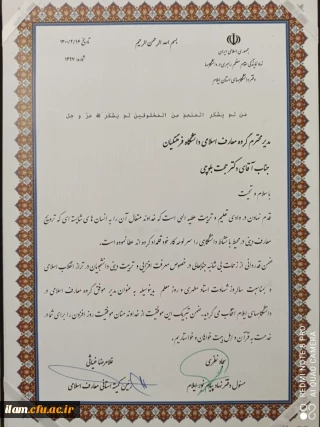 بسم الله الرحمن الرحیم
تاریخ: ۱۴۰۰/۲/۱۴
شماره: ۱۴۹۷
جمهوری اسلامی ایران
نهاد نمایندگی مقام معظم رهبری در دانشگاه‌ها
دفتر دانشگاه‌های استان ایلام
من لم یشکر المنعم من المخلوقین لم یشکر الله عز و جل
مدیر محترم گروه معارف اسلامی دانشگاه فرهنگیان
جناب آقای دکتر حجت بلوچی
با سلام و تحیت
قدم نهادن در وادی تعلیم و تربیت عطیه الهی است که خداوند متعال آن را به انسان‌های شایسته ای که ترویج
معارف دینی در محیط با نشاط دانشگاهی را سرلوحه کار خود قلمداد کرده اند عطا نموده است.
ضمن قدردانی از زحمات بی شائبه جنابعالی در خصوص معرفت افزایی و تربیت دینی دانشجویان در تراز انقلاب اسلامی
و بمناسبت سالروز شهادت استاد مطهری و روز معلم بدینوسیله به عنوان مدیر موفق گروه معارف اسلامی در
دانشگاه‌های ایلام انتخاب می گردید. ضمن تبریک این موفقیت از خداوند منان موفقیت روز افزون را برای شما در
خدمت به قرآن و اهل بیت خواهان و خواستاریم.
سجاد نظری
مسئول دفتر نهاد پیام نور ایلام
غلامرضا غیاثی
رئیس کمیته استانی معارف اسلامی
ilam.cfu.ac.ir
REDMI NOTE 8 PRO
AI QUAD CAMERA